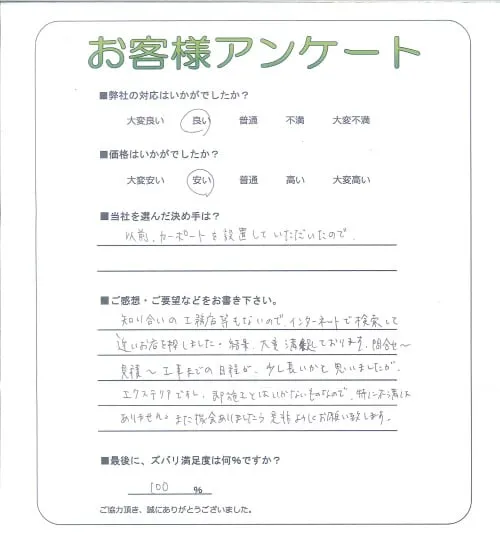 お客様アンケート
■弊社の対応はいかがでしたか？
大変良い 良い 普通 不満 大変不満
■価格はいかがでしたか？
大変安い 安い 普通 高い 大変高い
■当社を選んだ決め手は？
以前、カーポートを設置していただいたので。
■ご感想・ご要望などをお書き下さい。
知り合いの工務店等もないので、インターネットで検索して
近いお店を探しました。結果、大変満足しております。問合せ～
見積～工事までの日程が、少し長いかと思いましたが、
エクステリアですし、即施工とはいかないものなので、特に不満は
ありません。また機会ありましたら是非よろしくお願い致します。
■最後に、ズバリ満足度は何％ですか？
100 ％
ご協力頂き、誠にありがとうございました。